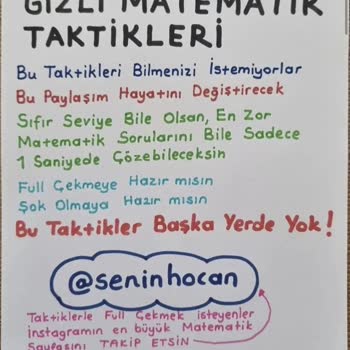 GİZLİ MATEMATİK
TAKTİKLERİ
Bu Taktikleri Bilmenizi İstemiyorlar
Bu Paylaşım Hayatını Değiştirecek
Sıfır Seviye Bile Olsan, En Zor
Matematik Sorularını Bile Sadece
1 Saniyede Çözebileceksin
Full Çekmeye Hazır mısın
Şok Olmaya Hazır mısın
Bu Taktikler Başka Yerde Yok!
@seninhocan
Taktiklerle Full Çekmek isteyenler
instagramın en büyük Matematik
Sayfasını TAKİP ETSİN